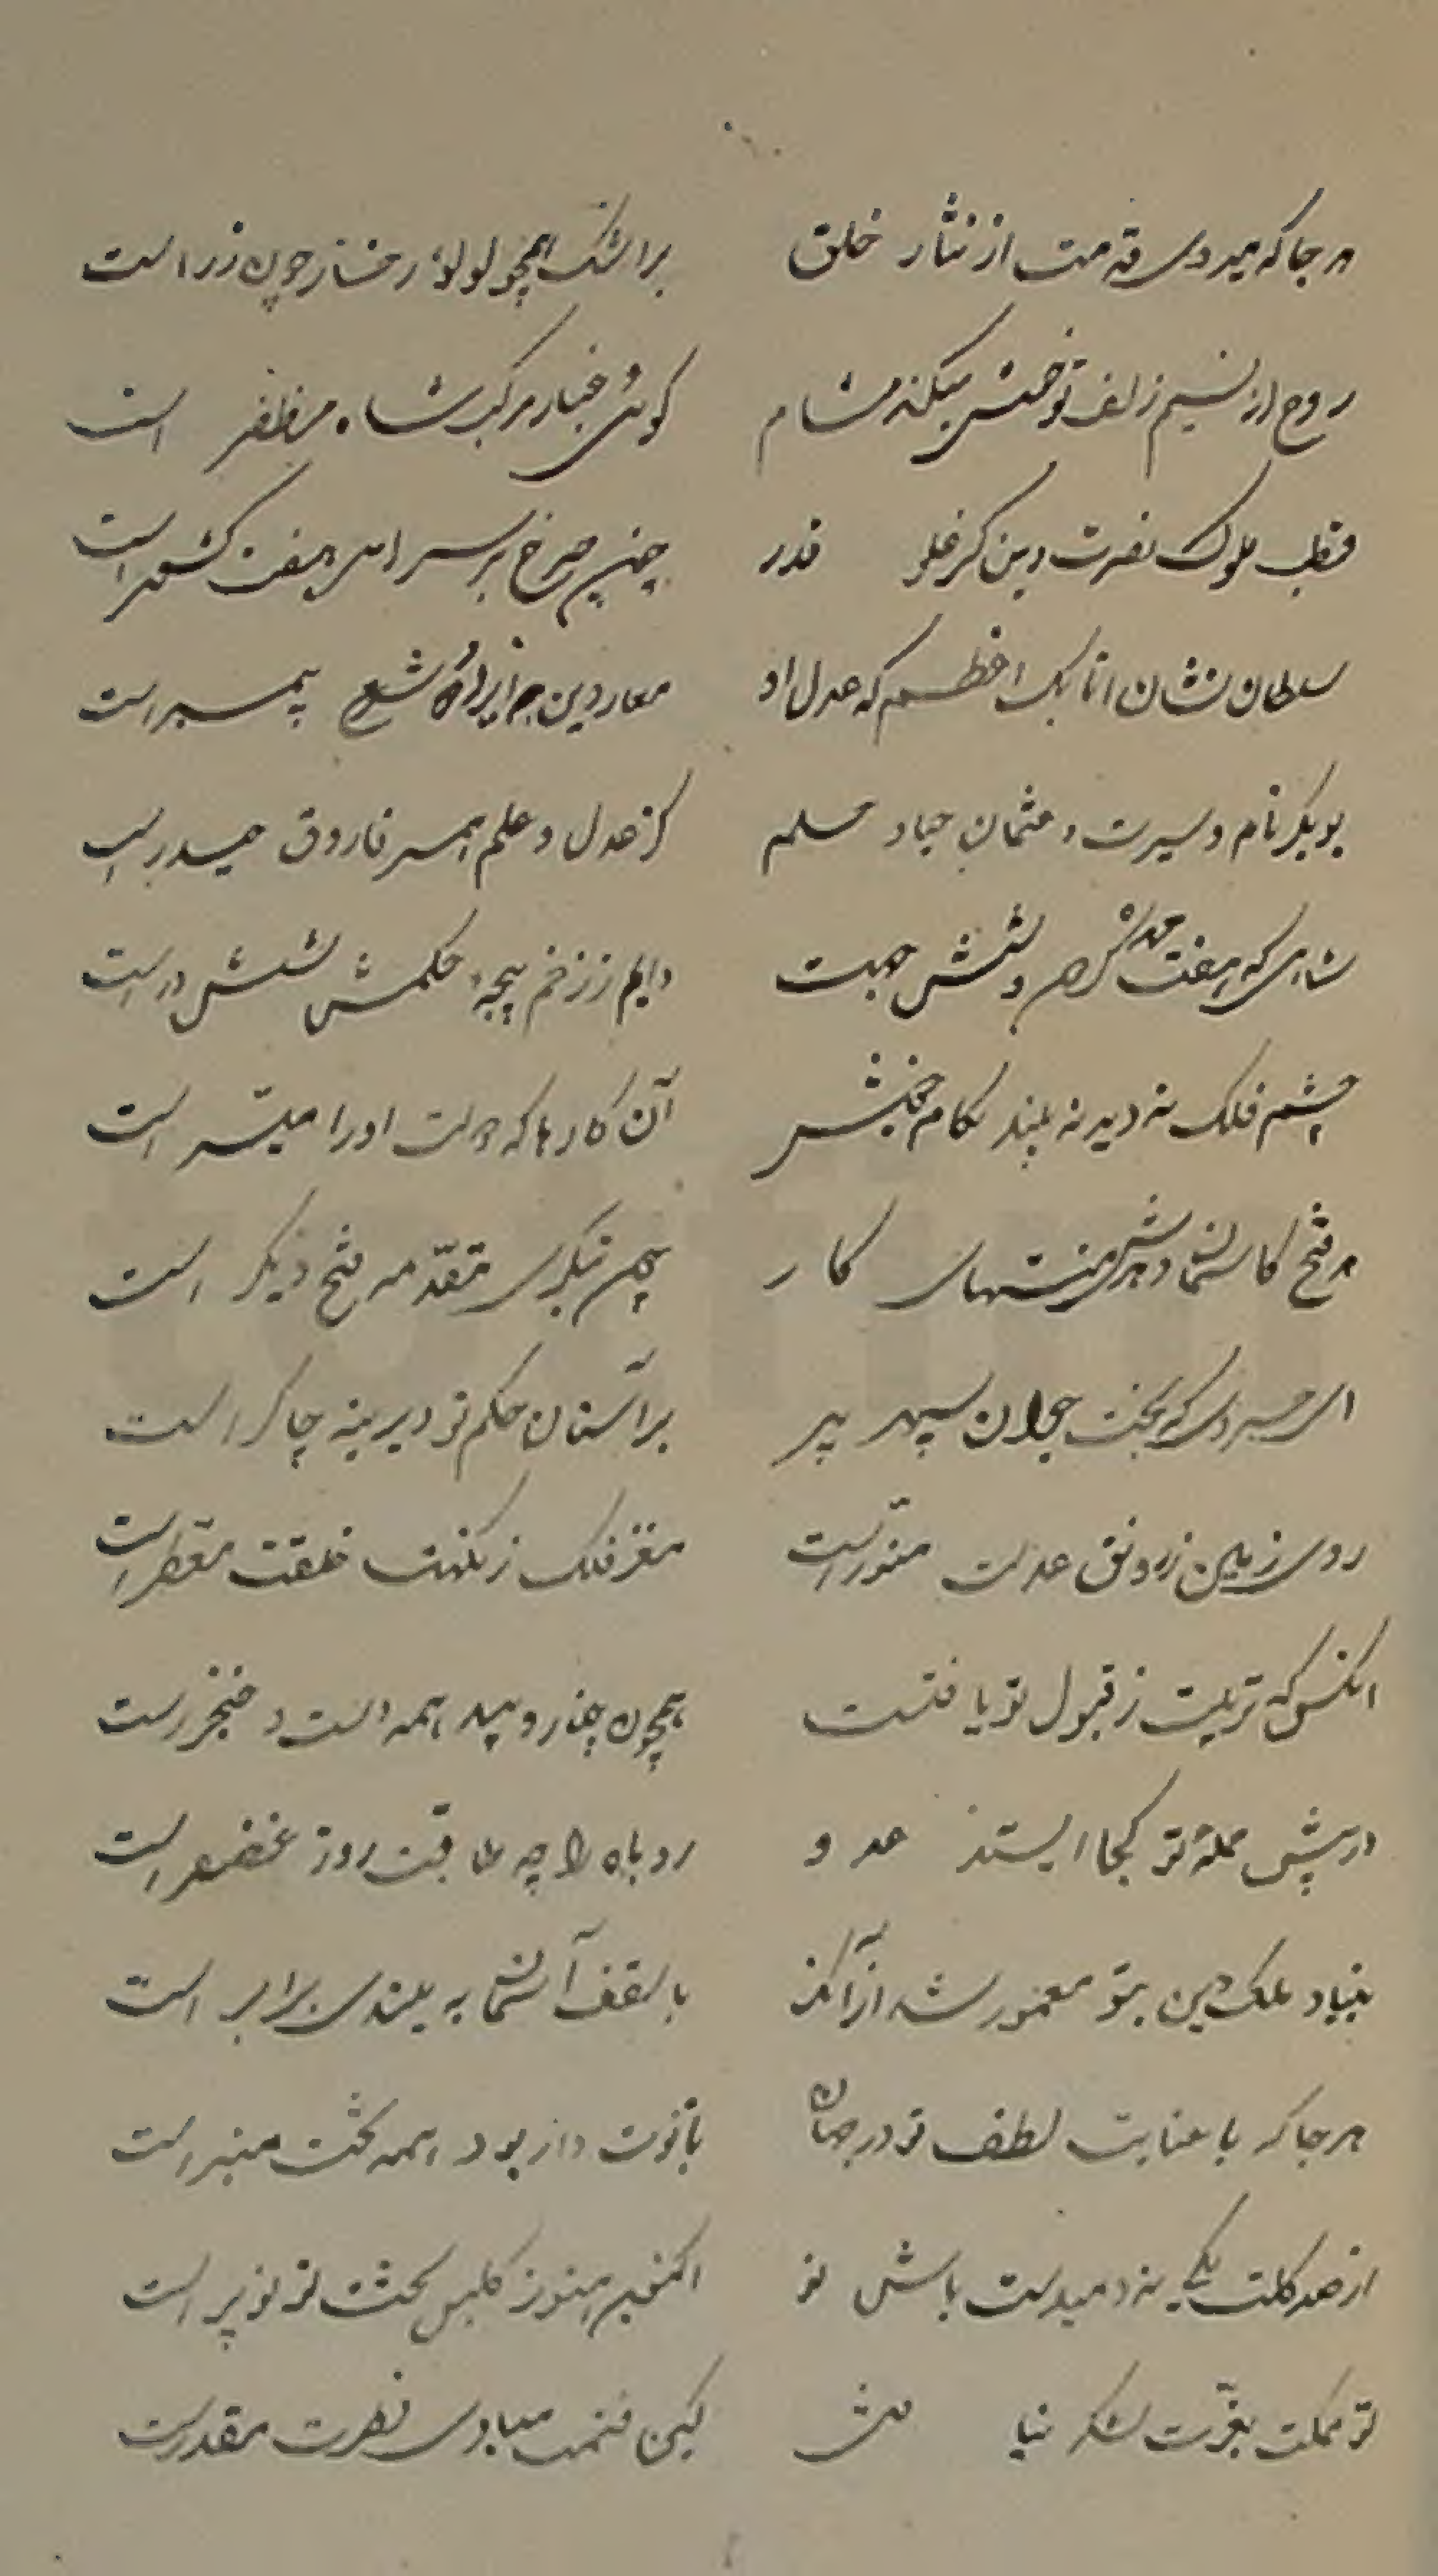 هر جا که میروی قدمت از نثار خلق براشک همچو لولؤ رخسار چون زر است
روح از نسیم زلف تو خوش میکند مشام گوئی غبار مرکب شاه مظفر است
قطب ملوک نصرت دین کز علو قدر چون چرخ بر سر امرا هفت کشور است
سلطان نشان اتابک اعظم که عدل او معمار دین شرع پیمبر است
بوبکر نام و سیرت و عثمان حیاد مسلم کز عدل و علم همسر فاروق حیدر است
شاهی که هفت و شش جهت دایم ز زخم پنجه حکمش شش در است
چشم فلک نه دید نه بیند بکام خویش آن کارها که دولت او را میسر است
هر فتح کاسمان منتهای کار چون بنگری مقدمه فتح دیگر است
ای خسروی که بخت جوان سپهر پیر بر آستان حکم تو دیرینه چاکر است
روی زمین ز رونق عدلت منور است مغز فلک ز نکهت خلقت معطر است
انکس که تربیت ز قبول تو یافتست همچون چنار و بید همه دست و خنجر است
در پیش حملهٔ تو کجا ایستد عدو روباه را چه طاقت روز غضنفر است
بنیاد ملک دین بتو معمور شد از آنک با سقف آسمان به بلندی برابر است
هر جا که با عنایت لطف تو در جهان بازوت دار بود همه تخت منبر است
از صد گلت یکی نه دمیدست باش تو اکنون هنوز گلبن بخت تو نوبر است
تو مملکت بقوت لشکر نیافتی کین فتمت مبادی نصرت مقدر است